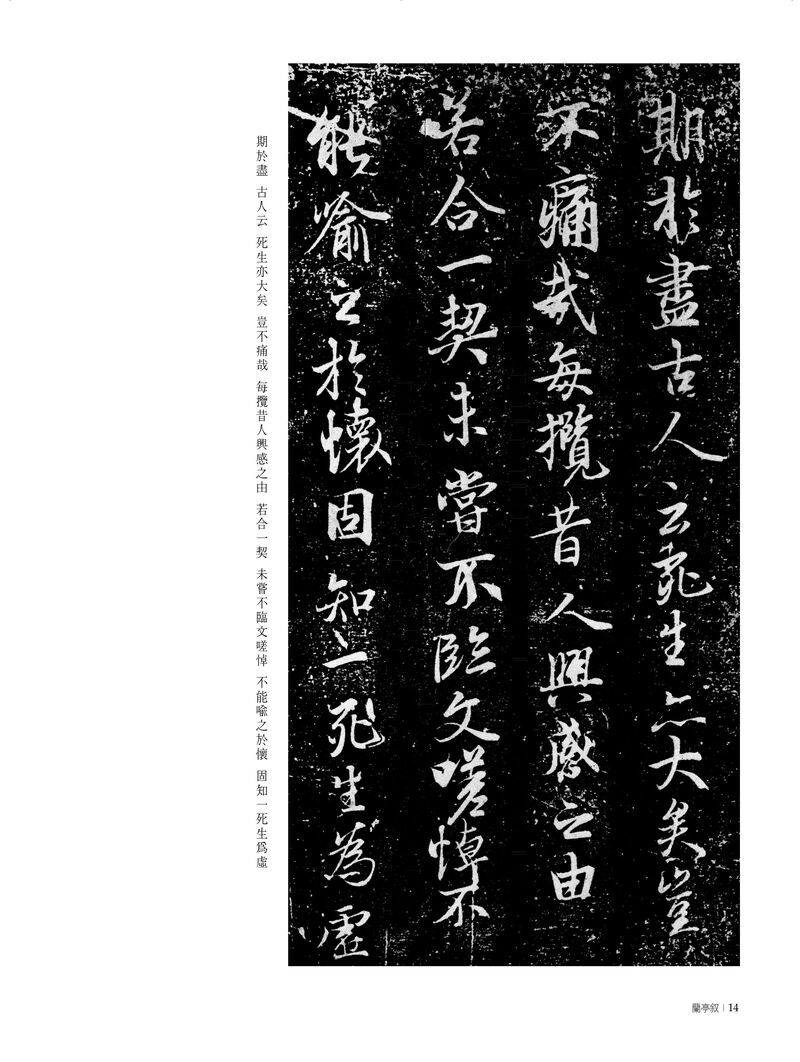 期於盡古人云死生亦大矣豈
不痛哉每攬昔人興感之由
若合一契未嘗不臨文嗟悼不
能喻之於懷固知一死生為虛
期於盡 古人云 死生亦大矣 豈不痛哉 每攬昔人興感之由 若合一契 未嘗不臨文嗟悼 不能喻之於懷 固知一死生爲虛
蘭亭叙 | 14